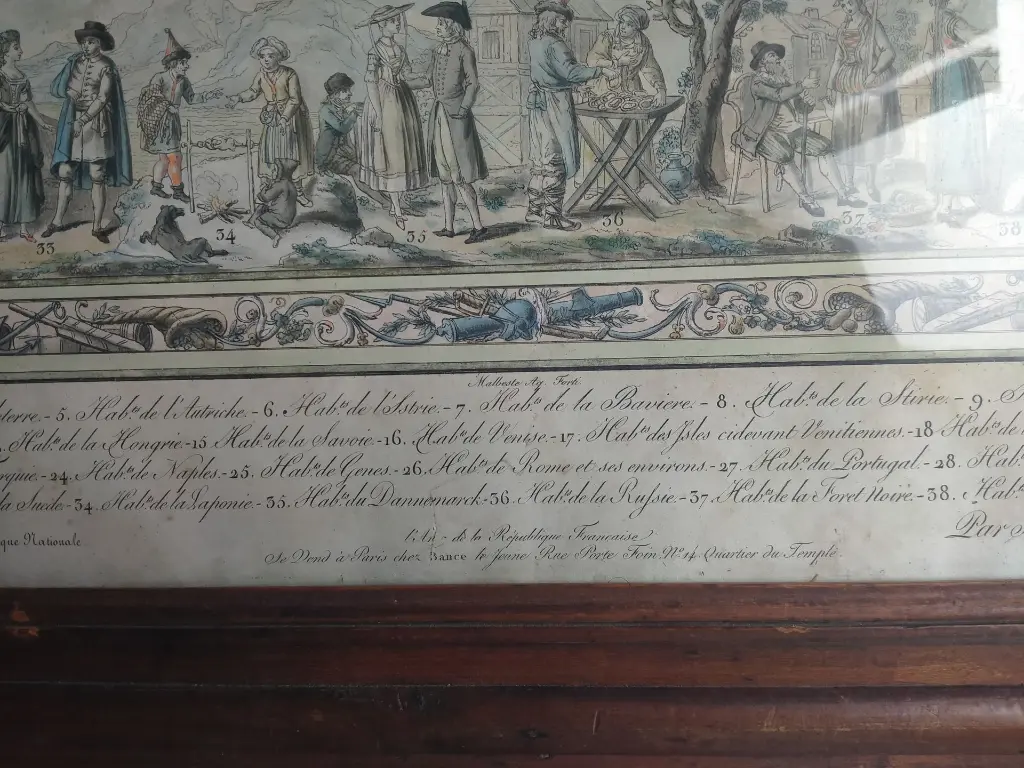 33 34 35 36 37 38
Malbeste Aq. Forti.
terre.- 5. Hab.ts de l'Autriche.- 6. Hab.ts de l'Istrie.- 7. Hab.ts de la Baviere.- 8. Hab.ts de la Stirie.- 9.
Hab.ts de la Hongrie.-15 Hab.ts de la Savoie.-16. Hab.ts de Venise.-17. Hab.ts des Isles cidevant Venitiennes.-18 Hab.ts de
rque.-24. Hab.ts de Naples.-25. Hab.ts de Genes.-26. Hab.ts de Rome et ses environs.-27. Hab.ts du Portugal.-28. Hab.ts
la Suede.-34. Hab.ts de la Laponie.-35. Hab.ts du Dannemarck.-36. Hab.ts de la Russie.-37. Hab.ts de la Foret Noire.-38. Hab.ts
Par
que Nationale.
l'An - de la République Française
Se Vend à Paris chez Bance le Jeune Rue Porte Foin N.º 14 Quartier du Temple.